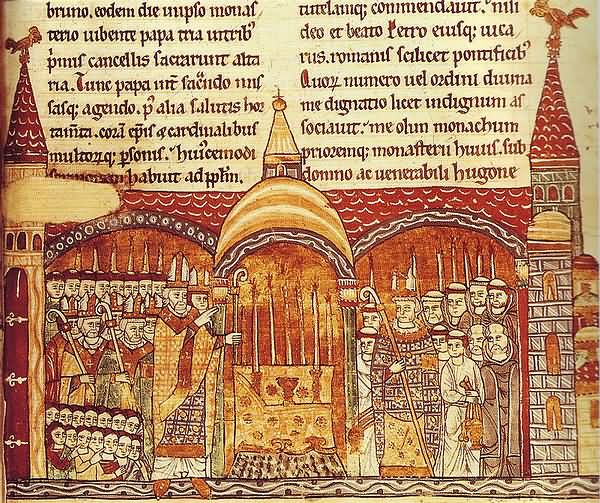 bruno. eodem die in ipso monas
terio iubente papa tria in tribꝰ
primis cancellis sacrarunt alta
ria. Tunc papa int̄ sac̄ndū mis
sasq; agendo. p̄ alia salutis hor
tam̄ta. corā ep̄is ⁊ cardinalibus
multorūq; p̄sonis. huiꝰcemodi
habuit ad pp̄lm.
tutelamq; commendauit. nisi
deo et beato Petro eiusq; uica
rus. romanis scilicet pontificibꝰ
Quoꝝ numero uel ordini diuina
me dignatio licet indignum as
sociauit. me olim monachum
prioremq; monasterii huius. sub
domno ac uenerabili hugone